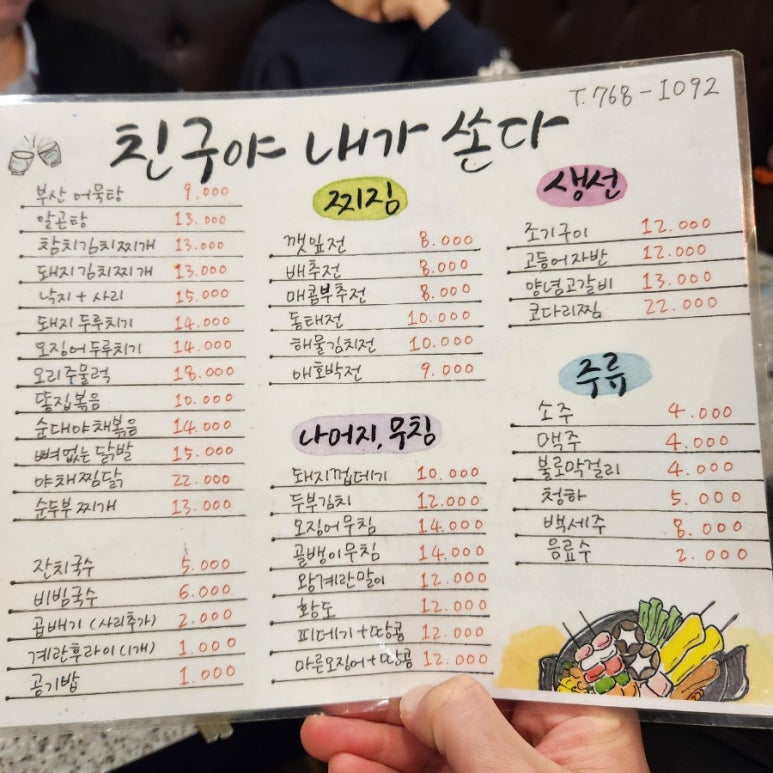 T. 768-1092
친구야 내가 쏜다
부산 어묵탕 9.000
알곤탕 13.000
참치김치찌개 13.000
돼지김치찌개 13.000
낙지+사리 15.000
돼지두루치기 14.000
오징어두루치기 14.000
오리주물럭 18.000
똥집볶음 10.000
순대야채볶음 14.000
뼈없는 닭발 15.000
야채찜닭 22.000
순두부찌개 13.000
잔치국수 5.000
비빔국수 6.000
곱배기 (사리추가) 2.000
계란후라이(1개) 1.000
공기밥 1.000
찌짐
깻잎전 8.000
배추전 8.000
매콤부추전 8.000
동태전 10.000
해물김치전 10.000
애호박전 9.000
나머지, 무침
돼지껍데기 10.000
두부김치 12.000
오징어무침 14.000
골뱅이무침 14.000
왕계란말이 12.000
황도 12.000
피데기+땅콩 12.000
마른오징어+땅콩 12.000
생선
조기구이 12.000
고등어자반 12.000
양념고갈비 13.000
코다리찜 22.000
주류
소주 4.000
맥주 4.000
불로막걸리 4.000
청하 5.000
백세주 8.000
음료수 2.000